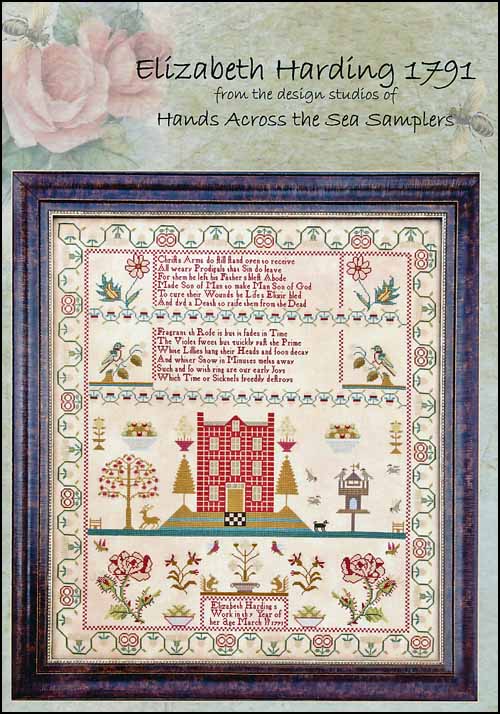 Elizabeth Harding 1791
from the design studios of
Hands Across the Sea Samplers
Christs Arms do still stand open to receive
All weary Prodigals that Sin do leave
For them he left his Father s blest Abode
Made Son of Man to make Man Son of God
To cure their Wounds he Life s Elixir bled
And dyd a Death to raise them from the Dead
Fragrant th Rose is but it fades in Time
The Violet sweet but quickly past the Prime
White Lillies hang their Heads and soon decay
And whiter Snow in Minutes melts away
Such and so with ring are our early Joys
Which Time or Sickness speedily destroys
Elizabeth Harding s
Work in the Year of
her age March 1791